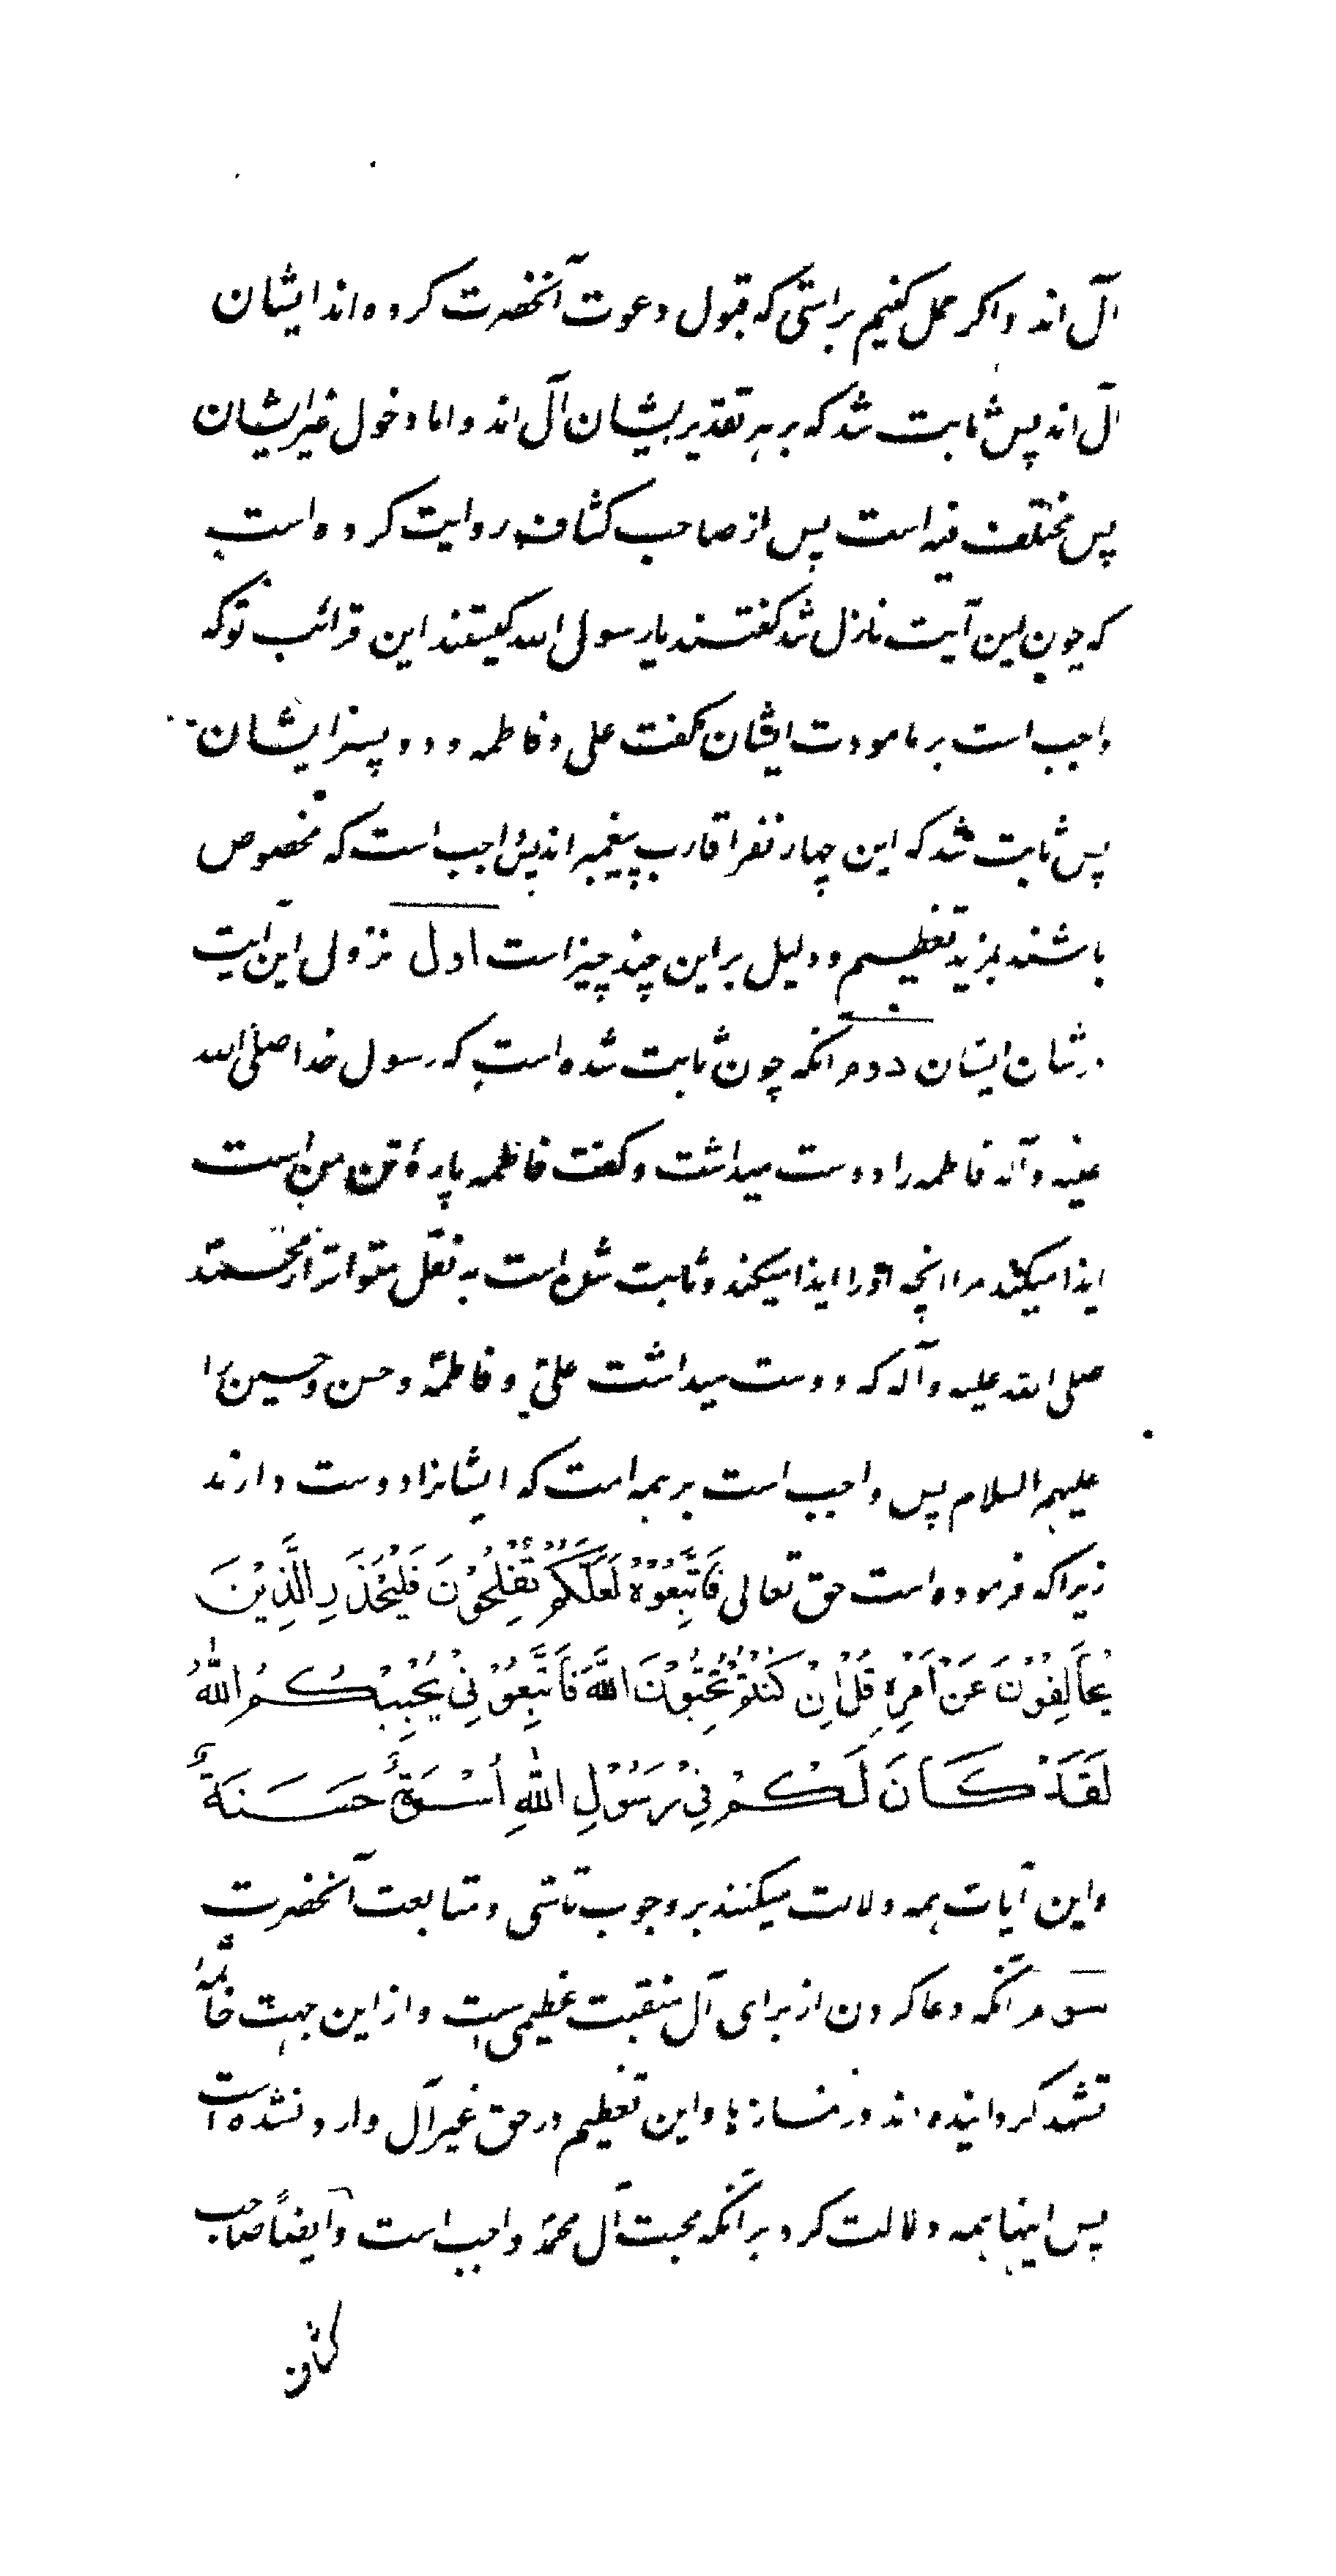 آل اند و اگر حمل کنیم بر امتی که قبول دعوت آنحضرت کرده اند ایشان
آل اند پس ثابت شد که بر هر تقدیر ایشان آل اند و اما دخول غیر ایشان
پس مختلف فیه است پس از صاحب کشاف روایت کرده است
که چون این آیت نازل شد گفتند یا رسول الله کیستند این قرائب تو که
واجب است بر ما مودت ایشان گفت علی و فاطمه و دو پسر ایشان
پس ثابت شد که این چهار نفر اقارب پیغمبر اند پس واجب است که مخصوص
باشند بمزید تعظیم و دلیل بر این چند چیز است اول نزول این آیت
در شان ایشان دوم آنکه چون ثابت شده است که رسول خدا صلی الله
علیه و آله فاطمه را دوست میداشت و گفت فاطمه پارۀ تن من است
ایذا میکند مرا انچه او را ایذا میکند و ثابت شده است به نقل متواتر از محمد
صلی الله علیه و آله که دوست میداشت علی و فاطمه و حسن و حسین را
علیهم السلام پس واجب است بر همه امت که ایشانرا دوست دارند
زیرا که فرموده است حق تعالی فَاتَّبِعُوْهُ لَعَلَّكُمْ تُفْلِحُوْنَ فَلْيَحْذَرِ الَّذِيْنَ
يُخَالِفُوْنَ عَنْ اَمْرِهٖ قُلْ اِنْ كُنْتُمْ تُحِبُّوْنَ اللّٰهَ فَاتَّبِعُوْنِيْ يُحْبِبْكُمُ اللّٰهُ
لَقَدْ كَانَ لَكُمْ فِيْ رَسُوْلِ اللّٰهِ اُسْوَةٌ حَسَنَةٌ
و این آیات همه دلالت میکنند بر وجوب تاسی و متابعت آنحضرت
سوم آنکه دعا کردن از برای آل منقبت عظیمی است و از این جهت خاتمۀ
تشهد گردانیده اند در نمازها و این تعظیم در حق غیر آل وارد نشده است
پس اینها همه دلالت کرد بر آنکه محبت آل محمد واجب است و ایضاً صاحب
کشاف